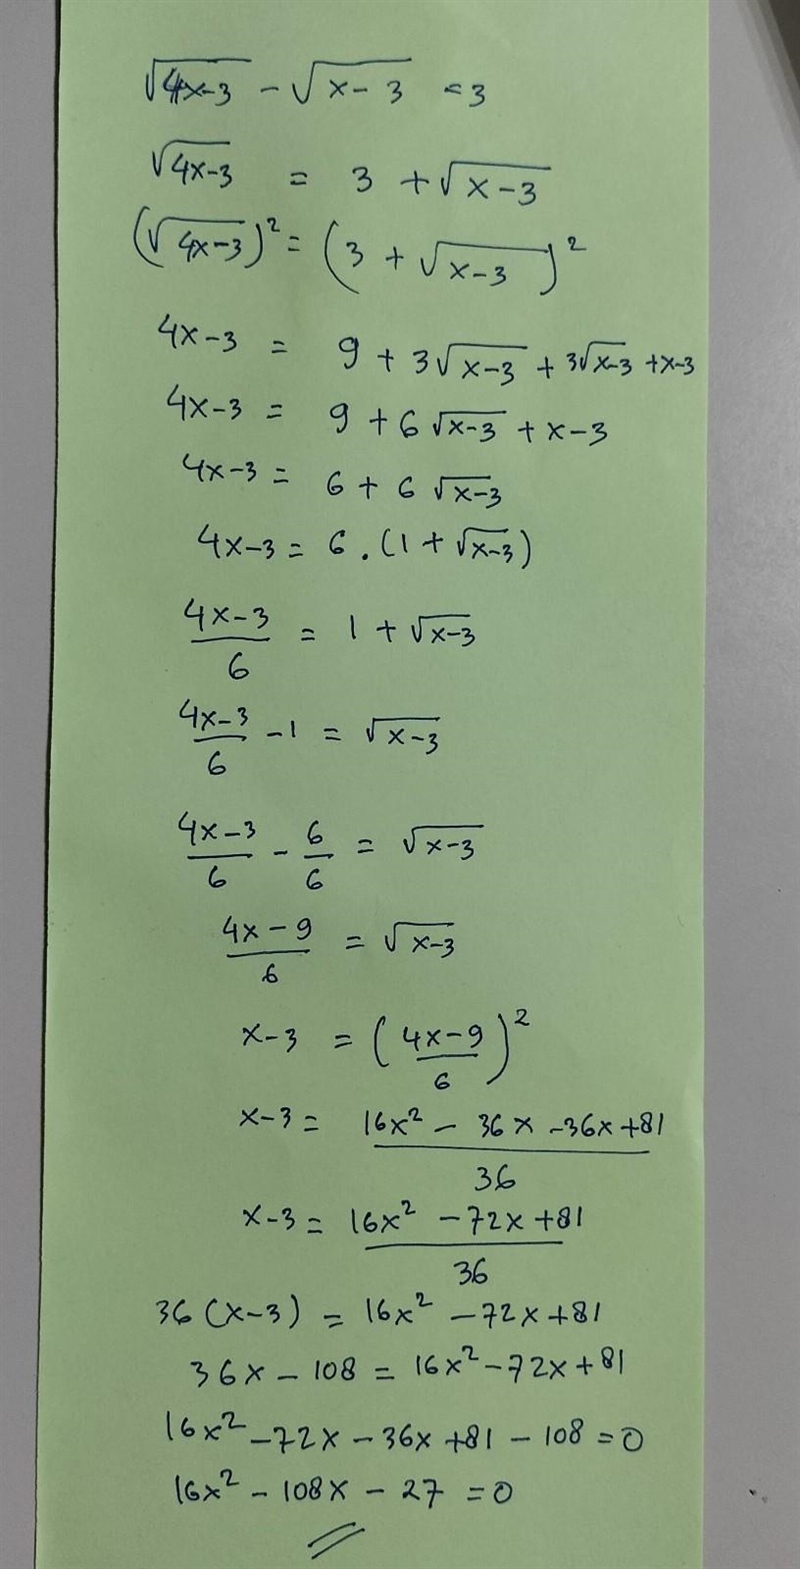 √(4x-3) - √(x-3) = 3
√(4x-3) = 3 + √(x-3)
(√(4x-3))² = (3 + √(x-3))²
4x-3 = 9 + 3√(x-3) + 3√(x-3) + x-3
4x-3 = 9 + 6√(x-3) + x-3
4x-3 = 6 + 6√(x-3)
4x-3 = 6 . (1 + √(x-3))
(4x-3)/6 = 1 + √(x-3)
(4x-3)/6 - 1 = √(x-3)
(4x-3)/6 - 6/6 = √(x-3)
(4x-9)/6 = √(x-3)
x-3 = ((4x-9)/6)²
x-3 = (16x² - 36x - 36x + 81)/36
x-3 = (16x² - 72x + 81)/36
36(x-3) = 16x² - 72x + 81
36x - 108 = 16x² - 72x + 81
16x² - 72x - 36x + 81 - 108 = 0
16x² - 108x - 27 = 0